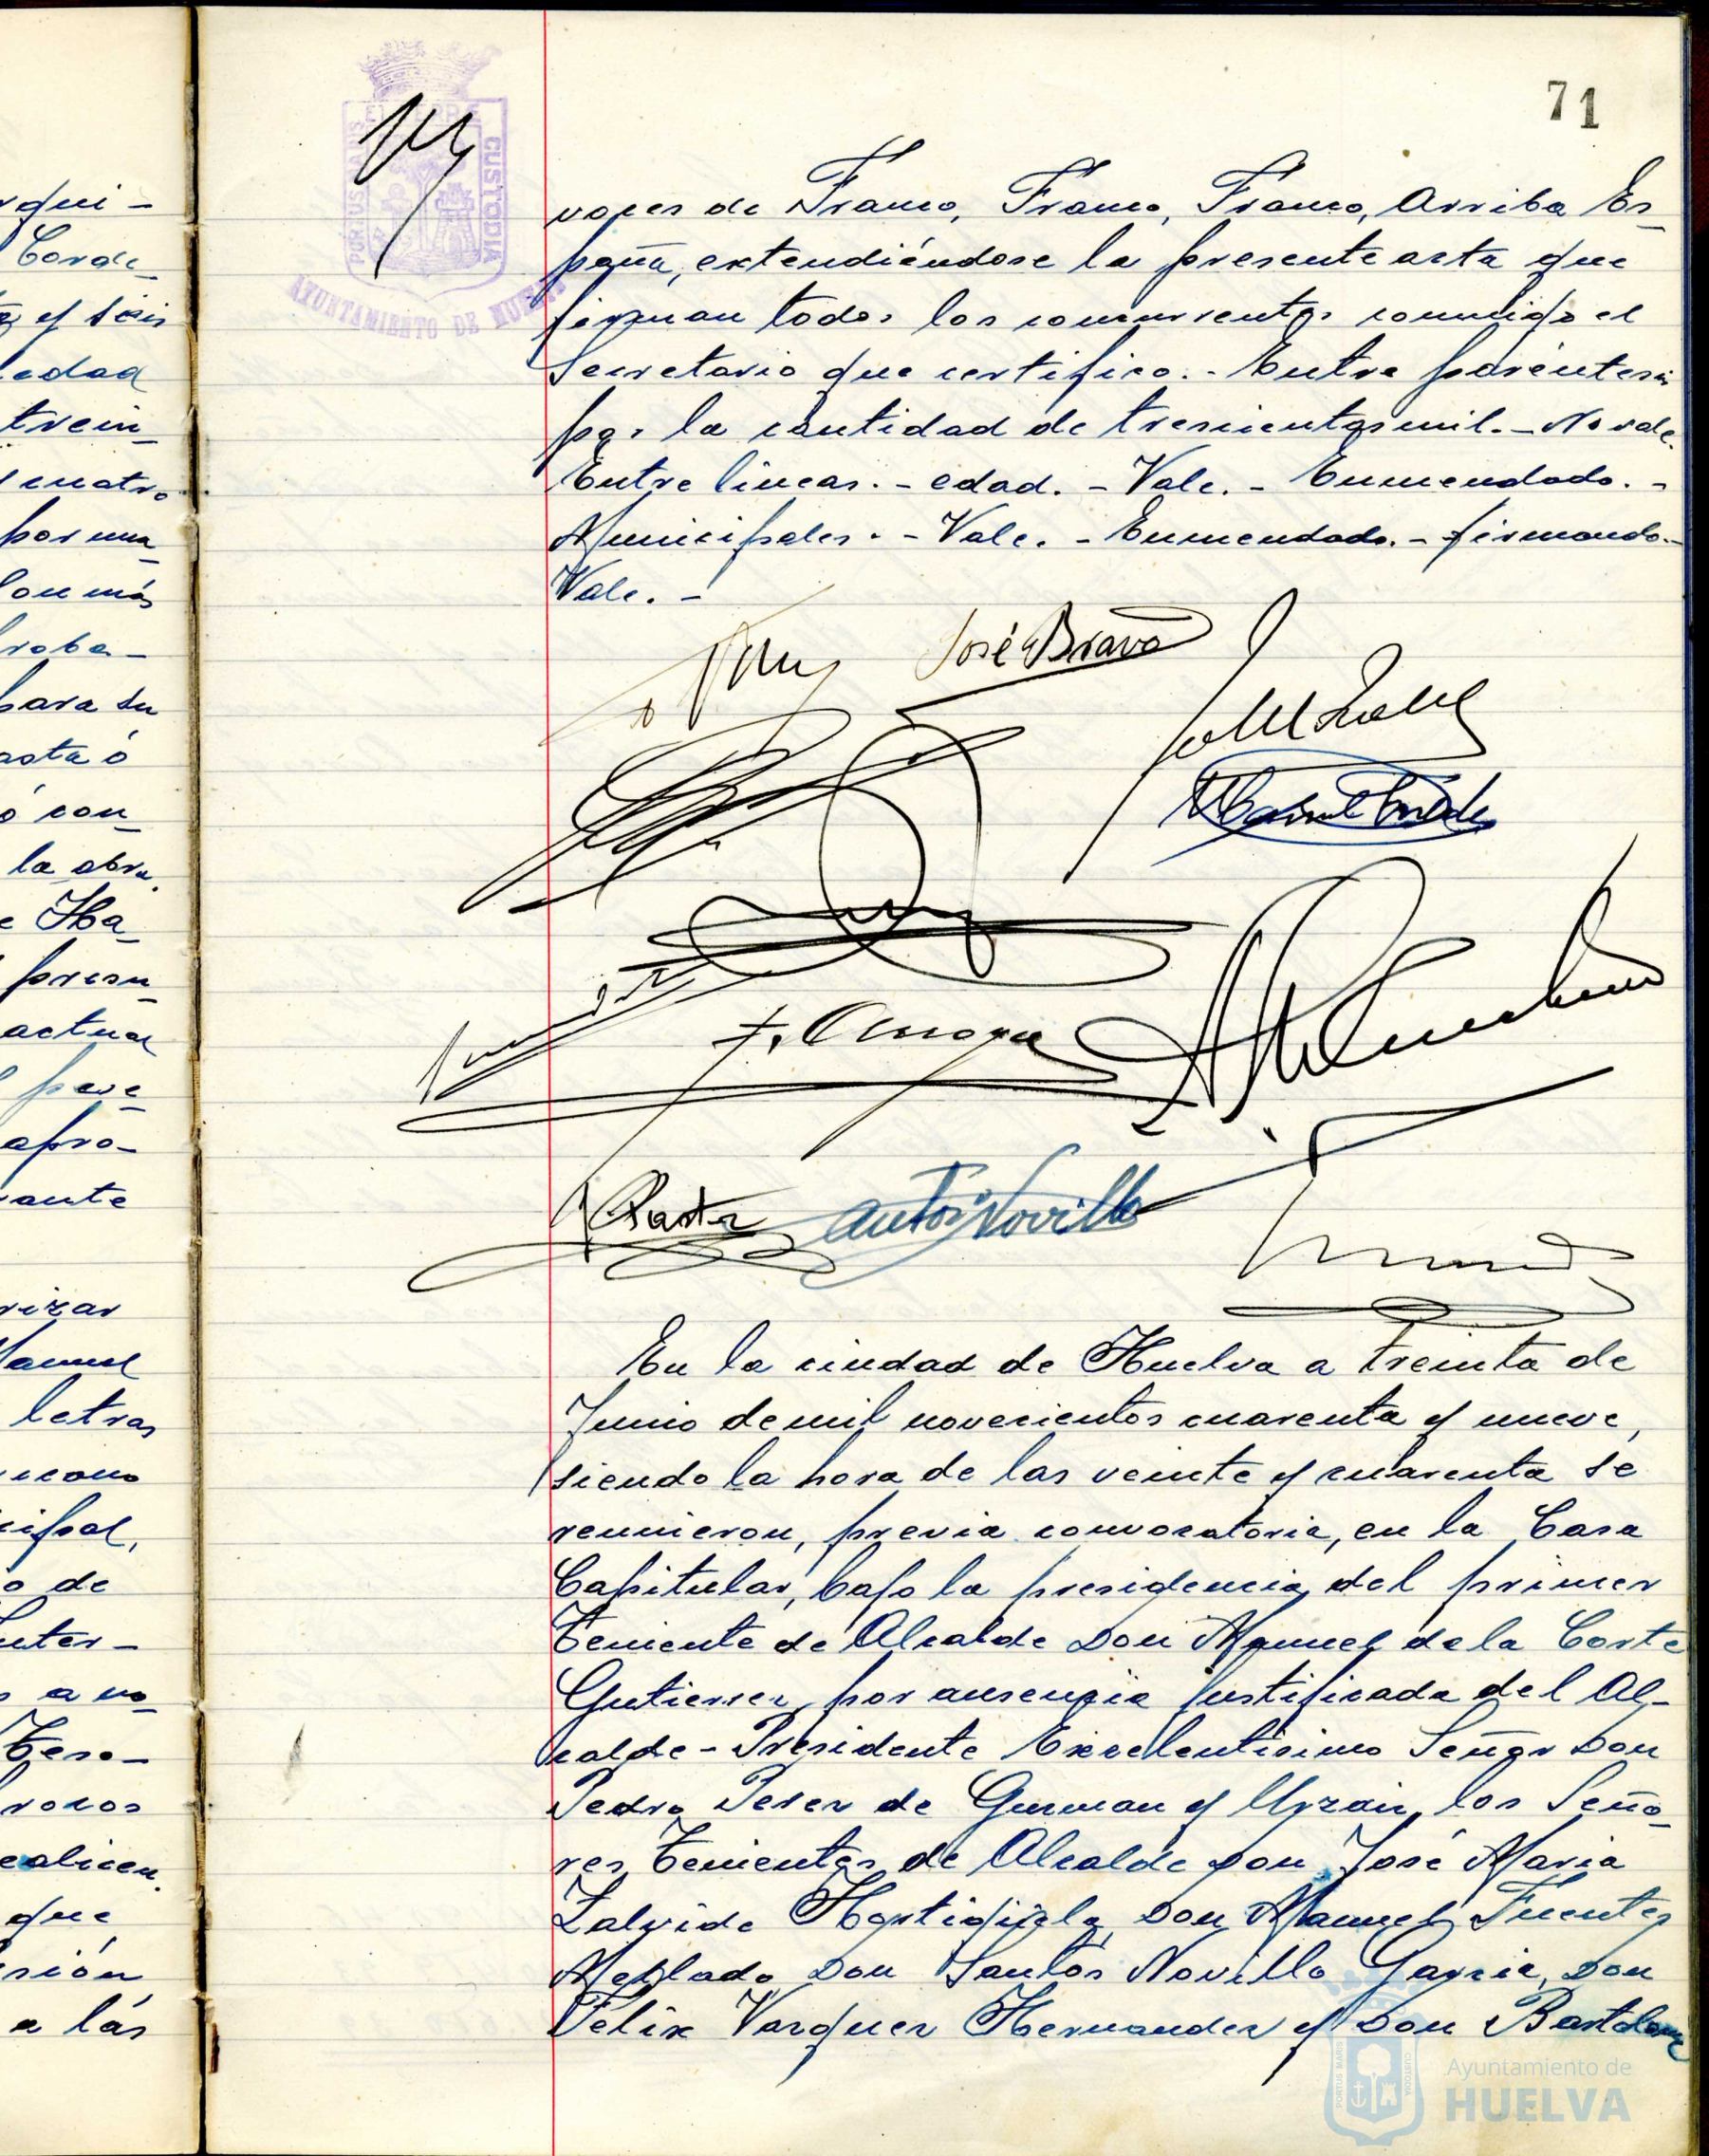 71
PORTUS MARIS
ET TERRE
CUSTODIA
AYUNTAMIENTO DE HUELVA
rqui-
Corde-
y seis
edad
trein-
cuatro
por una
ron más
roba-
para su
asta ó
ó con-
la obra.
e Ha-
presu-
actual
afro-
vante
rizar
Manuel
letras
cipal,
o de
Inter-
s a vo-
Teso-
rocos
ealicen
que
sión
a las
voces de Franco, Franco, Franco, Arriba Es-
paña, extendiéndose la presente acta que
firman todos los concurrentes conmigo el
Secretario que certifico.- Entre paréntesis
por la cantidad de trescientas mil.- No vale.
Entre lineas.- edad.- Vale.- Enmendado.-
Municipales.- Vale.- Enmendado.- firmando.-
Vale.-
José Bravo
Antº Novillo
En la ciudad de Huelva a treinta de
Junio de mil novecientos cuarenta y nueve,
siendo la hora de las veinte y cuarenta se
reunieron, previa convocatoria, en la Casa
Capitular, bajo la presidencia del primer
Teniente de Alcalde Don Manuel de la Corte
Gutierrez, por ausencia justificada del Al-
calde-Presidente Excelentisimo Señor Don
Pedro Perez de Guzman y Urzaiz, los Seño-
res Tenientes de Alcalde Don José Maria
Zalvide Hortigüela, Don Manuel Fuentes
Meblado Don Santos Novillo Garcia, Don
Felix Vazquez Hernandez y Don Bartolome
PORTUS MARIS
CUSTODIA
Ayuntamiento de
HUELVA